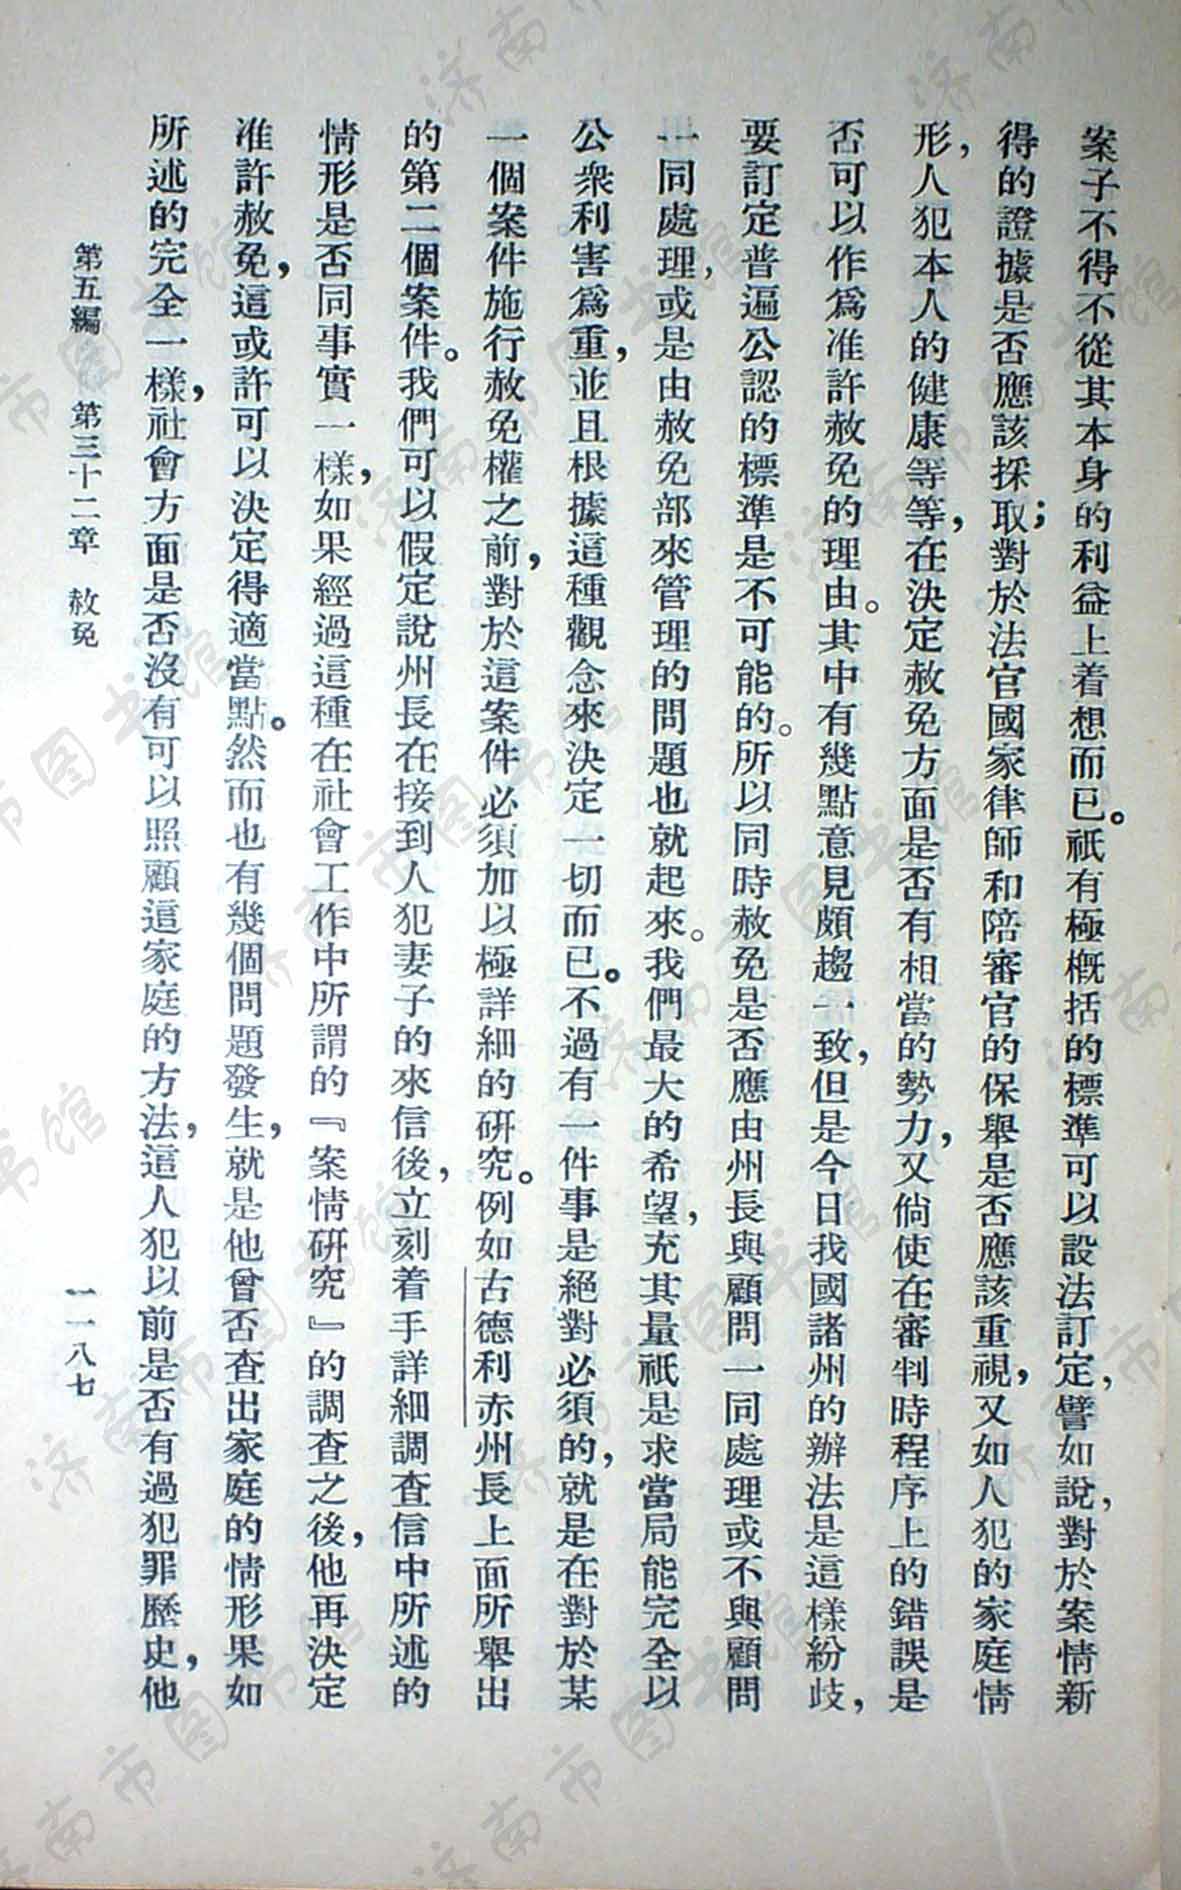 案子不得不從其本身的利益上着想而已。祇有極槪括的標準可以設法訂定,譬如說,對於案情新
得的證據是否應該採取;對於法官國家律師和陪審官的保舉是否應該重視,又如人犯的家庭情
形,人犯本人的健康等等,在決定赦免方面是否有相當的勢力,又倘使在審判時程序上的錯誤是
否可以作爲准許赦免的理由。其中有幾點意見頗趨一致,但是今日我國諸州的辦法是這樣紛歧,
要訂定普遍公認的標準是不可能的。所以同時赦免是否應由州長與顧問一同處理或不與顧問
一同處理,或是由赦免部來管理的問題也就起來。我們最大的希望,充其量祇是求當局能完全以
公衆利害爲重,並且根據這種觀念來決定一切而已。不過有一件事是絕對必須的,就是在對於某
一個案件施行赦免權之前,對於這案件必須加以極詳細的研究。例如古德利赤州長上面所舉出
的第二個案件。我們可以假定說州長在接到人犯妻子的來信後,立刻着手詳細調查信中所述的
情形是否同事實一樣,如果經過這種在社會工作中所謂的『案情研究』的調查之後,他再決定
准許赦免,這或許可以決定得適當點。然而也有幾個問題發生,就是他曾否查出家庭的情形果如
所述的完全一樣,社會方面是否沒有可以照顧這家庭的方法,這人犯以前是否有過犯罪歷史,他
第五編 第三十二章 赦免 一一八七
济南市图书馆